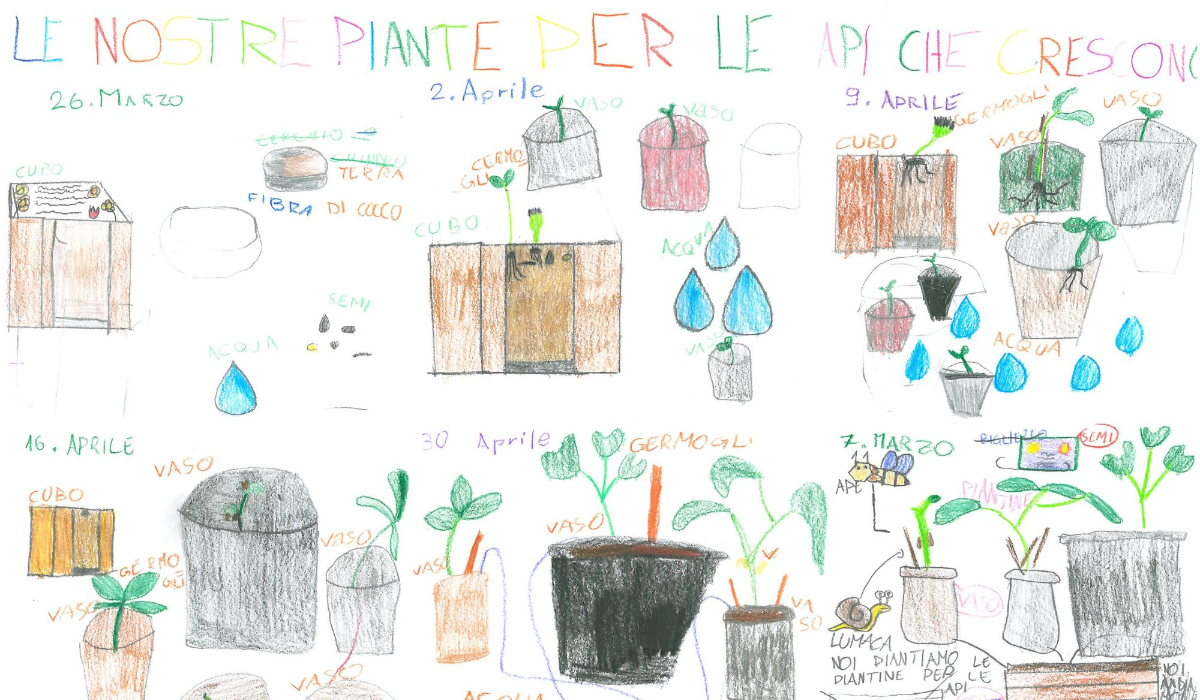 LE NOSTRE PIANTE PER LE API CHE CRESCONO
26. MARZO
CUBO
CERCHIO
CILINDRO
TERRA
FIBRA DI COCCO
SEMI
ACQUA
2. Aprile
VASO
VASO
GERMO
GLI
CUBO
ACQUA
VASO
9. APRILE
GERMOGLI
VASO
CUBO
VASO
VASO
ACQUA
16. APRILE
VASO
CUBO
VASO
GERMO
GLI
VASO
VASO
30 Aprile
GERMOGLI
VASO
VASO
VA
SO
ACQUA
7. MARZO
BIGLIETTO
SEMI
APE
PIANTINE
VASO
LUMACA
NOI PIANTIAMO LE
PIANTINE PER LE
API
NOI